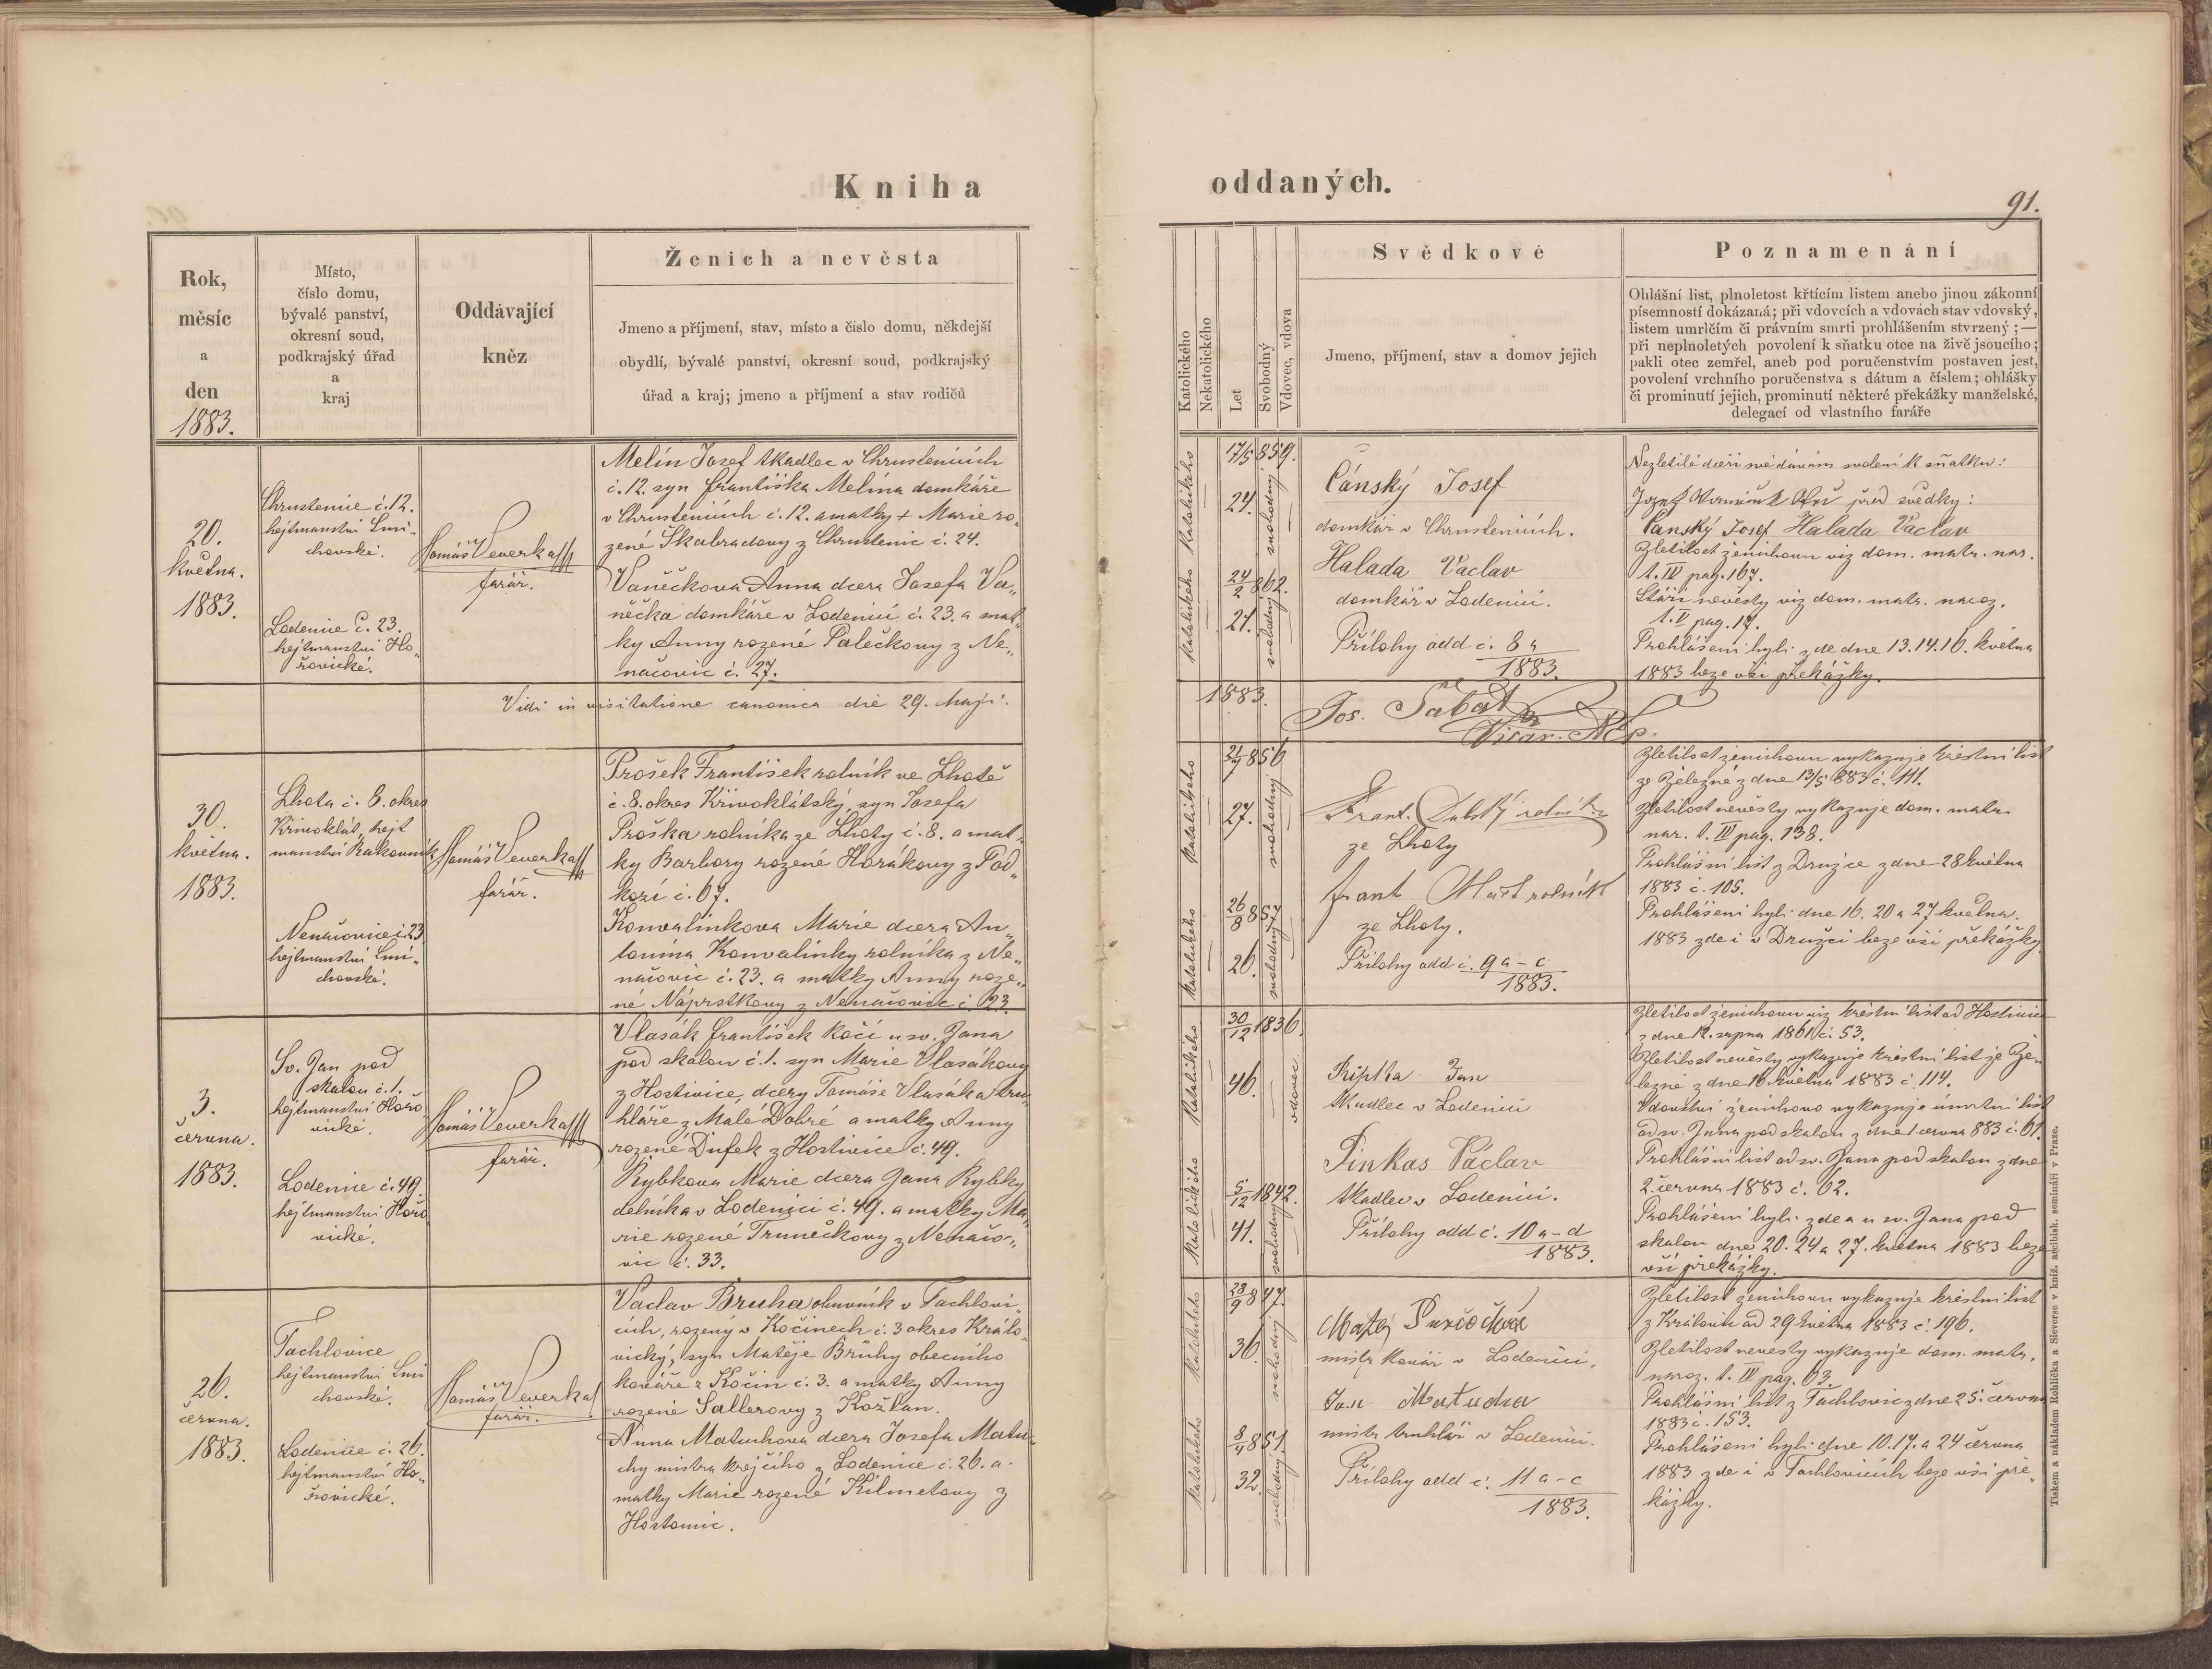 Kniha
oddaných.
91.
Rok,
měsíc
a
den
1883.
Místo,
číslo domu,
bývalé panství,
okresní soud,
podkrajský úřad
a
kraj
Oddávající
kněz
Ženich a nevěsta
Jmeno a příjmení, stav, místo a číslo domu, někdejší
obydlí, bývalé panství, okresní soud, podkrajský
úřad a kraj; jmeno a příjmení a stav rodičů
Katolického
Nekatolického
Let
Svobodný
Vdovec, vdova
Svědkové
Jmeno, příjmení, stav a domov jejich
Poznamenání
Ohlášní list, plnoletost křtícím listem anebo jinou zákonní
písemností dokázaná; při vdovcích a vdovách stav vdovský,
listem umrlčím či právním smrti prohlášením stvrzený; —
při neplnoletých povolení k sňatku otce na živě jsoucího;
pakli otec zemřel, aneb pod poručenstvím postaven jest,
povolení vrchního poručenstva s dátum a číslem; ohlášky
či prominutí jejich, prominutí některé překážky manželské,
delegací od vlastního faráře
20.
května.
1883.
Chrustenie č. 12.
hejtmanství Smi„
chovské.
Lodenice č. 23.
hejtmanství Ho„
řovické.
Tomáš Veverka
farář.
Melín Josef tkadlec v Chrustenicích
č. 12. syn Františka Melína domkáře
v Chrustenicích č. 12. a matky + Marie ro„
zené Škabradovy z Chrustenic č. 24.
Vaněčkova Anna dcera Josefa Va„
něčka domkáře v Lodenici č. 23. a mat„
ky Anny rozené Palečkovy z Ne„
načovic č. 27.
Katolického
17/5 859.
24.
svobodný
Katolického
24/2 862.
21.
svobodný
Cánský Josef
domkář v Chrustenicích.
Halada Vaclav
domkář v Lodenici.
Přílohy odd č. 8 a
1883.
Nezletilé dceři mé dávám svolení k sňatku:
Josef Vaněček otec před svědky:
Canský Josef Halada Vaclav
Zletilost ženichovu viz dom. matr. nar.
t. IV pag. 167.
Stáří nevěsty viz dom. matr. naroz.
t. V pag. 17.
Prohlášení byli zde dne 13. 14. 16. května
1883 beze vší překážky.
Vidi in visitatione canonica die 29. Maji
1883.
Jos. Šabat
Vicar.
30.
května.
1883.
Lhota č. 8. okres
Křivoklát, hejt
manství Rakovník
Nenačovice č. 23
hejtmanství Smí„
chovské.
Tomáš Veverka
farář.
Prošek František rolník ve Lhotě
č. 8. okres Křivoklátský, syn Josefa
Proška rolníka ze Lhoty č. 8. a mat„
ky Barbory rozené Horákovy z Pod„
kozí č. 67.
Konvalinkova Marie dcera An„
tonína Konvalinky rolníka z Ne„
načovic č. 23. a matky Anny roze„
né Náprstkovy z Nenačovic č. 23.
Katolického
21/9 856
27.
svobodný
Katolického
26/8 857
26.
svobodný
Frant. Dubský rolník
ze Lhoty
frant rolník
ze Lhoty.
Přílohy odd č. 9 a – c
1883.
Zletilost ženichovu vykazuje křestní list
ze Železné z dne 13/5 883 č. 111.
Zletilost nevěsty vykazuje dom. matr.
nar. t. IV pag. 138.
Prohlášní list z Družce z dne 28 května
1883 č. 105.
Prohlášeni byli dne 16. 20 a 27 května.
1883 zde i v Družci beze vší překážky
3.
června.
1883.
Sv. Jan pod
skalou č. 1.
hejtmanství Hořo„
vické.
Lodenice č. 49.
hejtmanství Hořo
vické.
Tomáš Veverka
farář.
Vlasák František kočí u sv. Jana
pod skalou č. 1. syn Marie Vlasákovy
z Hostivice, dcery Tomáše Vlasáka tru„
hláře z Malé Dobré a matky Anny
rozené Dufek z Hostivice č. 49.
Rybkova Marie dcera Jana Rybky
dělníka v Lodenici č. 49. a matky Ma„
rie rozené Trunečkovy z Nenačo„
vic č. 33.
Katolického
30/12 1836.
46.
vdovec
Katolického
5/12 1842.
41.
svobodný
Ripka Jan
tkadlec v Lodenici
Pinkas Václav
tkadlec v Lodenici.
Přílohy odd č. 10 a – d
1883.
Zletilost ženichovu viz křestní list od Hostivice
z dne 12. srpna 1861 č. 53.
Zletilost nevěsty vykazuje křestní list ze Že„
lezné z dne 16 května 1883 č. 114.
Vdovství ženichovo vykazuje úmrtní list
od sv. Jana pod skalou z dne 1 června 883 č. 61.
Prohlášní list od sv. Jana pod skalou z dne
2. června 1883 č. 62.
Prohlášeni byli zde a u sv. Jana pod
skalou dne 20. 24 a 27. května 1883 beze
vší překážky.
26.
června.
1883.
Tachlovice
hejtmanství Smí
chovské.
Lodenice č. 26.
hejtmanství Ho„
řovické.
Tomáš Veverka
farář.
Vaclav Bruha obuvník v Tachlovi„
cích, rozený v Kočinech č. 3 okres Králo„
vický, syn Matěje Brůhy obecního
kováře z Kočin č. 3. a matky Anny
rozené Sallerovy z Kožlan.
Anna Matuchova dcera Josefa Matu„
chy mistra krejčího z Lodenice č. 26. a
matky Marie rozené Kilmetovy z
Hostomic.
Katolického
28/9 847.
36.
svobodný
Katolického
8/4 851.
32.
svobodný
Matěj
mistr kovář v Lodenici.
Jan Matucha
mistr truhlář v Lodenici.
Přílohy odd č. 11 a – c
1883.
Zletilost ženichovu vykazuje křestní list
z Královic od 29 května 1883 č. 196.
Zletilost nevěsty vykazuje dom. matr.
naroz. t. IV pag. 63.
Prohlášní list z Tachlovic z dne 25. června
1883 č. 153.
Prohlášeni byli dne 10. 17. a 24 června
1883 zde i v Tachlovicích beze vší pře„
kážky.
Tiskem a nákladem Rohlíčka a Sieverse v kníž. arcibisk. semináři v Praze.